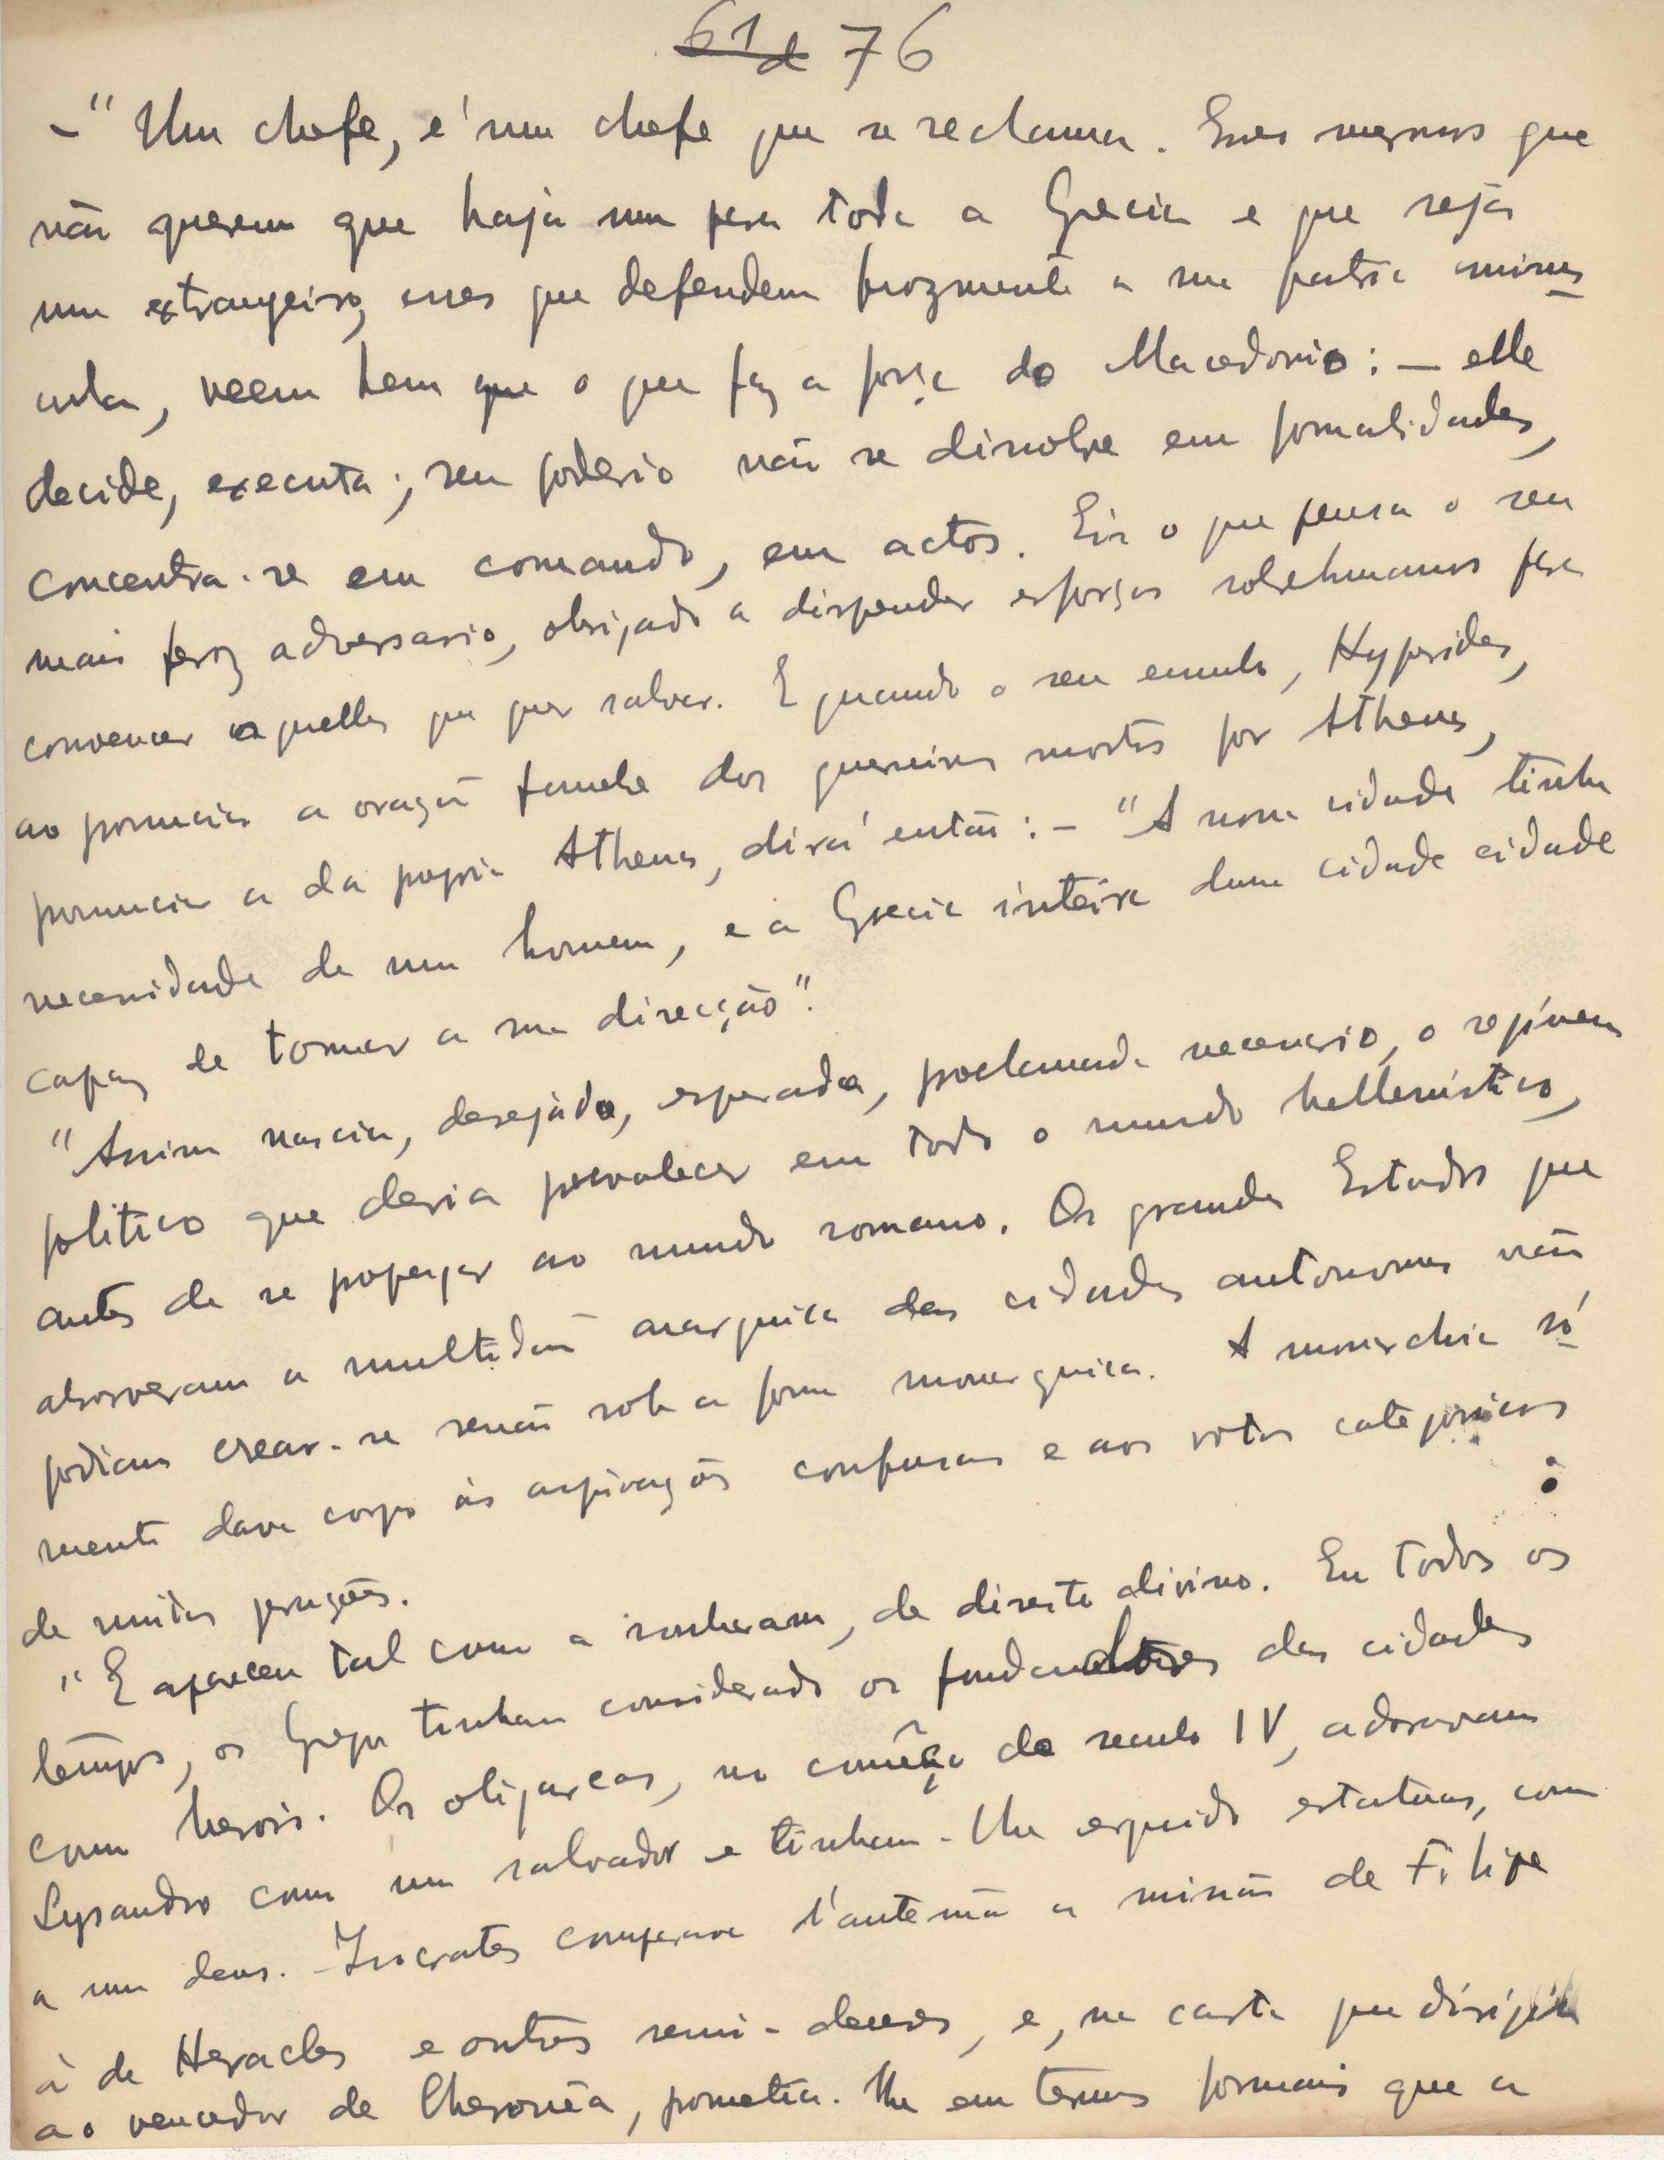 61d 76
-"Um chefe, é um chefe que se reclama. Esses mesmos que
não querem que haja um para toda a Grecia e que seja
um extrangeiro, esses que defendem ferozmente a sua patria minus
cula, veem bem que o que faz a força do Macedonio: - elle
decide, executa; seu poderio não se dissolve em formalidades,
concentra-se em comando, em actos. Eis o que pensa o seu
mais feroz adversario, obrigado a dispender esforços sobrehumanos para
convencer aquelles que quer salvar. E quando o seu emulo, Hyperides,
ao pronunciar a oração funebre dos guerreiros mortos por Athenas,
pronunciar a da propria Athenas, dirá então: - "A nossa cidade tinha
necessidade de um homem, e a Grecia inteira duma cidade cidade
capaz de tomar a sua direcção".
"Assim nascia, desejado, esperado, proclamado necessario, o regimen
politico que devia prevalecer em todo o mundo hellenistico,
antes de se propagar ao mundo romano. Os grandes Estados que
absorveram a multidão anarquica das cidades autonomas não
podiam crear-se senão sob a forma monarquica. A monarchia só
mente dava corpo ás aspirações confusas e aos votos categoricos
de muitas gerações.
"E apareceu tal como a sonharam, de direito divino. Em todos os
tempos, os Gregos tinham considerado os fundadores das cidades
como herois. Os oligarcas, no comêço do seculo IV, adoravam
Lysandro como um salvador e tinham-lhe erguido estatuas, como
a um deus. Isocrates comparava d'antemão a missão de Filipe
á de Heracles e outros semi-deuses, e, na carta que dirigiu
ao vencedor de Cheronêa, prometia-lhe em termos formais que a